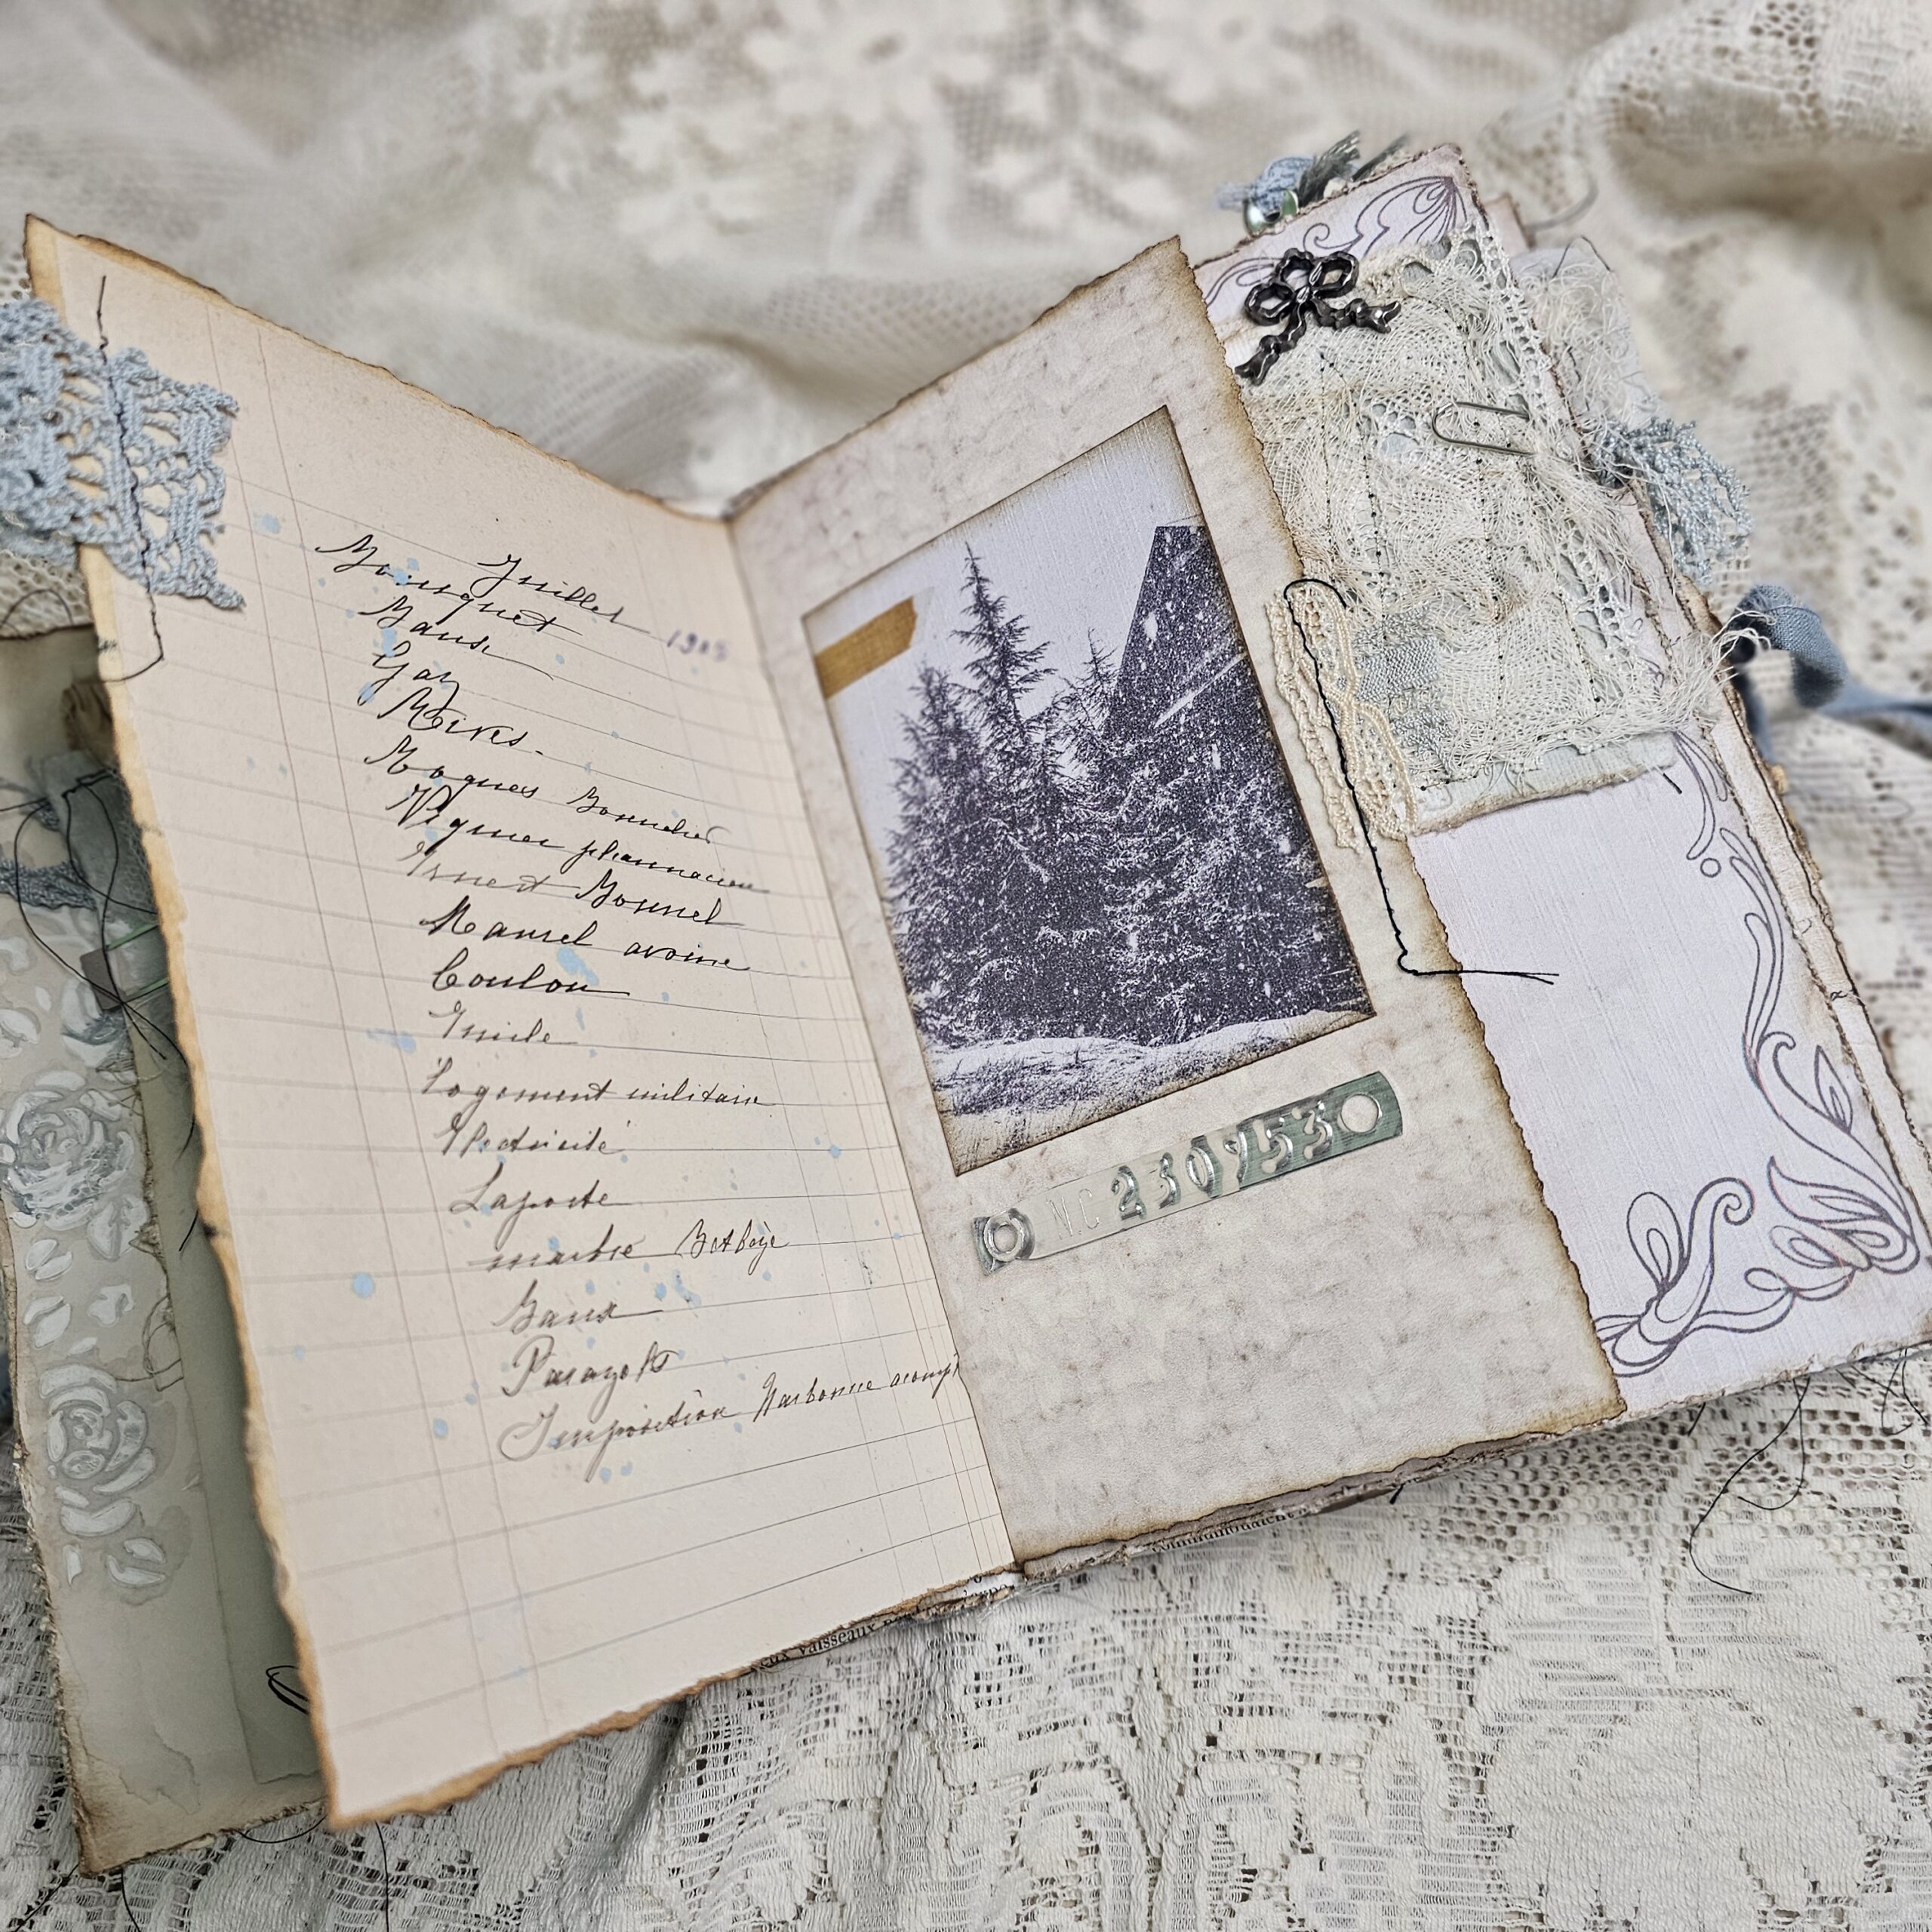 Juillet 1903
Bousquet
Baux
Gay
Mives.
Roques Bonnelier
Vignes pharmacien
Ernest Bonnel
Mansel avoine
Coulon
Emile
Logement militaire
Electricité
Laporte
marbre Batbège
Baux
Parazols
Imposition Narbonne acompt
NC 230953
vaisseaux